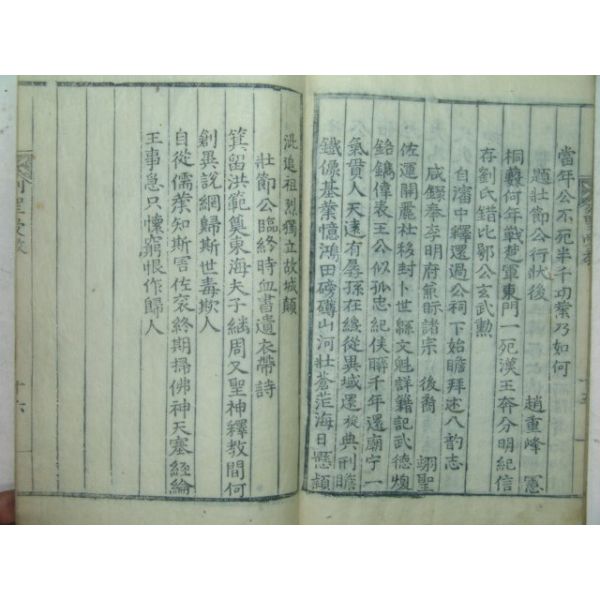 當年公不死半千切業乃如何
題壯節公行狀後　趙重峰　憲
桐藪何年戰趂軍東門一死漢王奔分明紀信
存劉氏錯比鄂公玄武勲
自瀋中繹還過公祠下始瞻拜述八韵志
感錄奉李明府兼眎諸宗　後裔　翊聖
佐運開麗社移封卜世緜文魁詳籍記武德煥
銘鐫偉表王公似孤忠紀俠聯千年還廟宇一
氣貫人天遠有孱孫在纔從異域還旋典刑瞻
鐵像基業憶鴻田磅礴山河壯蒼茫海日懸顧
漎追祖烈獨立故城顛
壯節公臨終時血書遺衣帶詩
箕留洪範奠東海夫子繼周又聖神釋教間何
創異說網歸斯世毒欺人
自從儒業知斯害佐衮終期掃佛神天塞經綸
王事急只懷窮恨作歸人
十五
十六